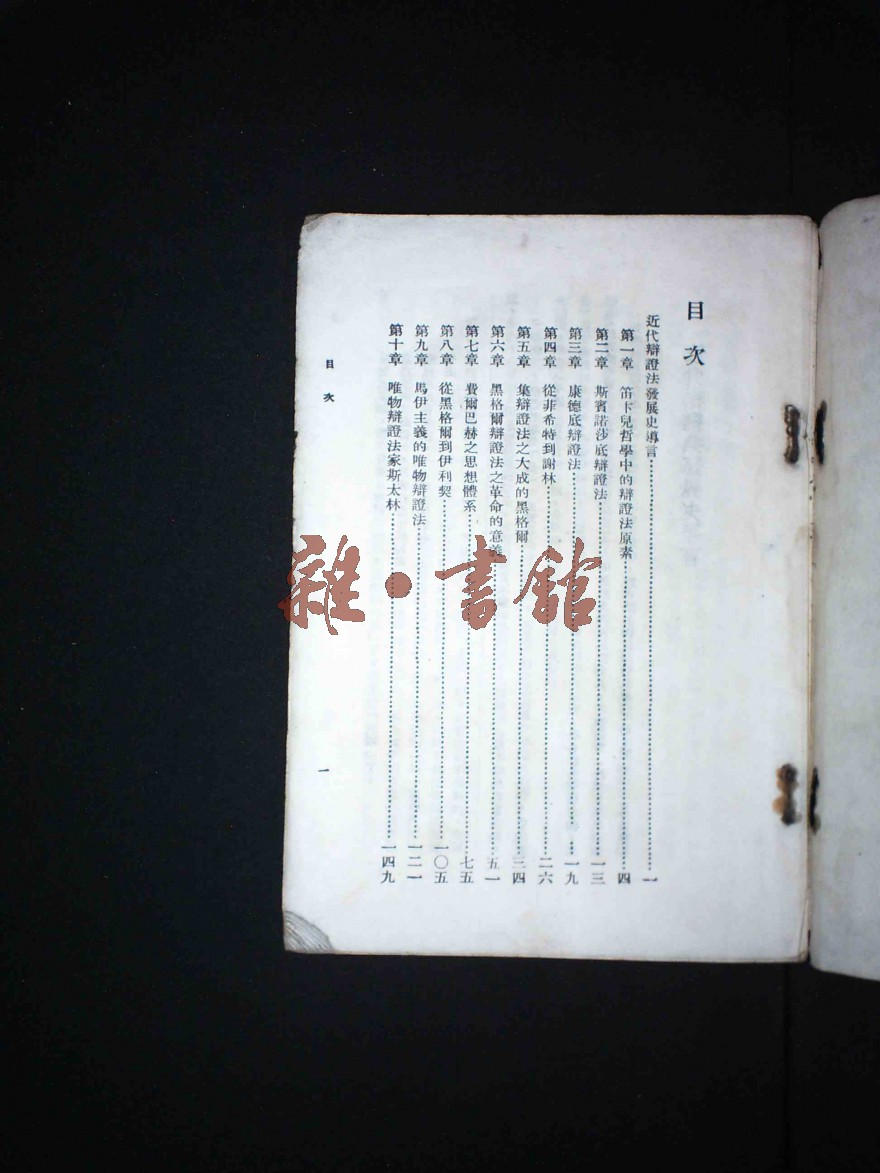 目次
近代辯證法發展史導言……一
第一章 笛卡兒哲學中的辯證法原素……四
第二章 斯賓諾莎底辯證法……一三
第三章 康德底辯證法……一九
第四章 從菲希特到謝林……二六
第五章 集辯證法之大成的黑格爾……三四
第六章 黑格爾辯證法之革命的意義……五一
第七章 費爾巴赫之思想體系……七五
第八章 從黑格爾到伊利契……一〇五
第九章 馬伊主義的唯物辯證法……一二一
第十章 唯物辯證法家斯太林……一四九
目次
一
雜·書館